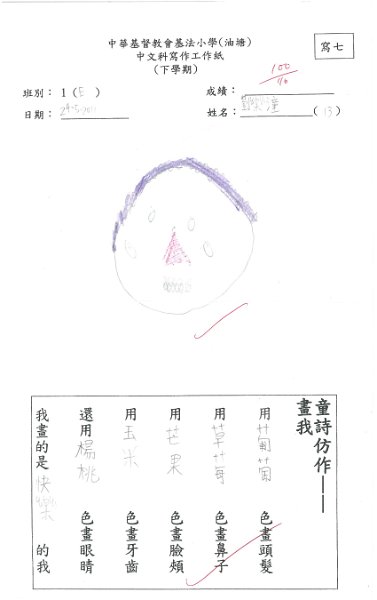 中華基督教會基法小學(油塘)
中文科寫作工作紙
(下學期)
寫七
班別：1(E)
成績：100
日期：
姓名：(13)
童詩仿作——
畫我
用葡萄色畫頭髮
用草莓色畫鼻子
用芒果色畫臉頰
用玉米色畫牙齒
還用楊桃色畫眼睛
我畫的是快樂的我